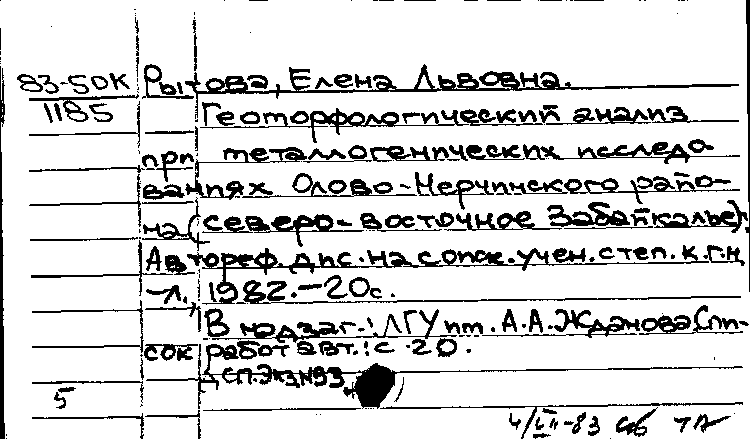 83-5ОК Рытова, Елена Львовна.
1185 Геоморфологический анализ
при металлогенических исследо
ваниях Олово-Нерчинского райо-
на (северо-восточное Забайкалье):
Автореф. дис. на соиск. учен. степ. к.г.н
-Л., 1982.-20с.
В надзаг.: ЛГУ им. А.А.Жданова. Спи-
сок работ авт.: с. 20.
ДСП. Экз N93
5
4/III-83